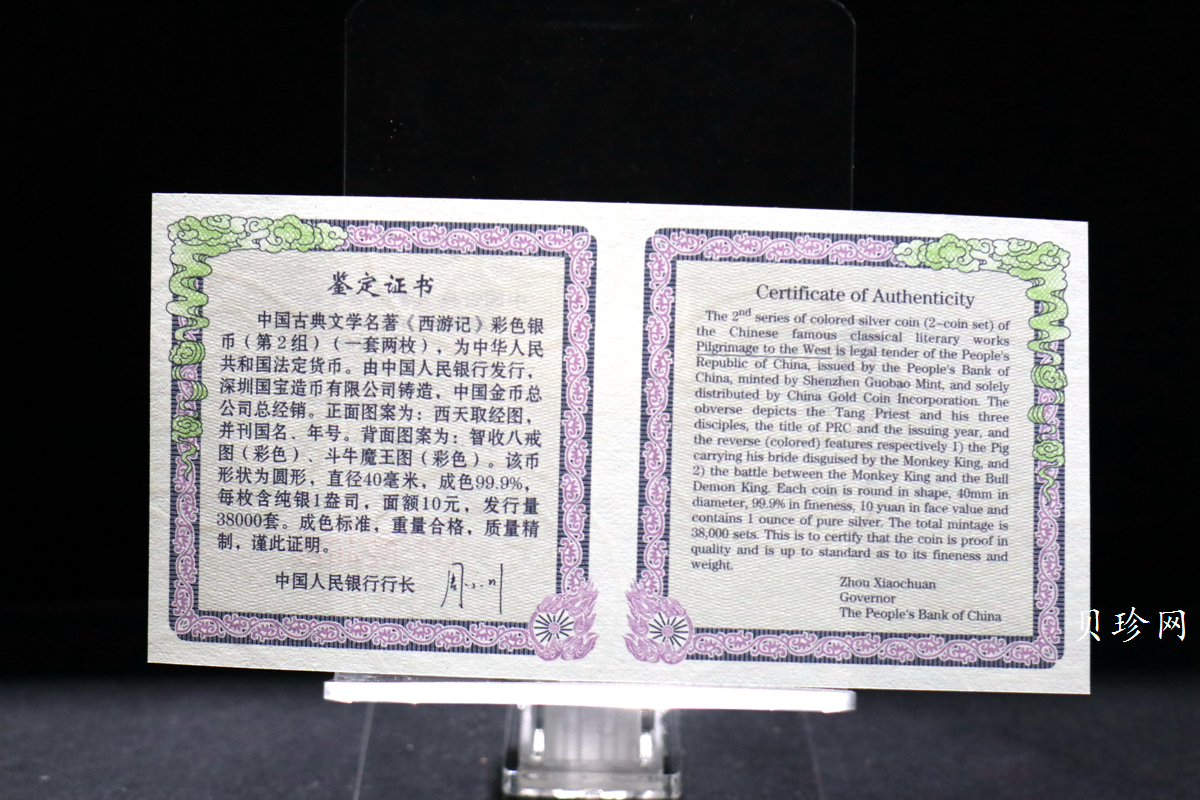 鉴定证书
中国古典文学名著《西游记》彩色银
币（第2组）（一套两枚），为中华人民
共和国法定货币。由中国人民银行发行，
深圳国宝造币有限公司铸造，中国金币总
公司总经销。正面图案为：西天取经图，
并刊国名、年号。背面图案为：智收八戒
图（彩色）、斗牛魔王图（彩色）。该币
形状为圆形，直径40毫米，成色99.9%，
每枚含纯银1盎司，面额10元，发行量
38000套。成色标准，重量合格，质量精
制，谨此证明。
中国人民银行行长 周小川
Certificate of Authenticity
The 2nd series of colored silver coin (2-coin set) of
the Chinese famous classical literary works
Pilgrimage to the West is legal tender of the People's
Republic of China, issued by the People's Bank of
China, minted by Shenzhen Guobao Mint, and solely
distributed by China Gold Coin Incorporation. The
obverse depicts the Tang Priest and his three
disciples, the title of PRC and the issuing year, and
the reverse (colored) features respectively 1) the Pig
carrying his bride disguised by the Monkey King, and
2) the battle between the Monkey King and the Bull
Demon King. Each coin is round in shape, 40mm in
diameter, 99.9% in fineness, 10 yuan in face value and
contains 1 ounce of pure silver. The total mintage is
38,000 sets. This is to certify that the coin is proof in
quality and is up to standard as to its fineness and
weight.
Zhou Xiaochuan
Governor
The People's Bank of China
贝珍网